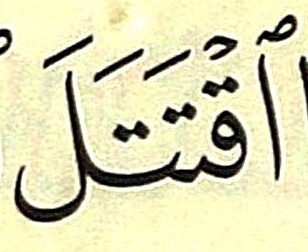 ٱقْتَتَلَ